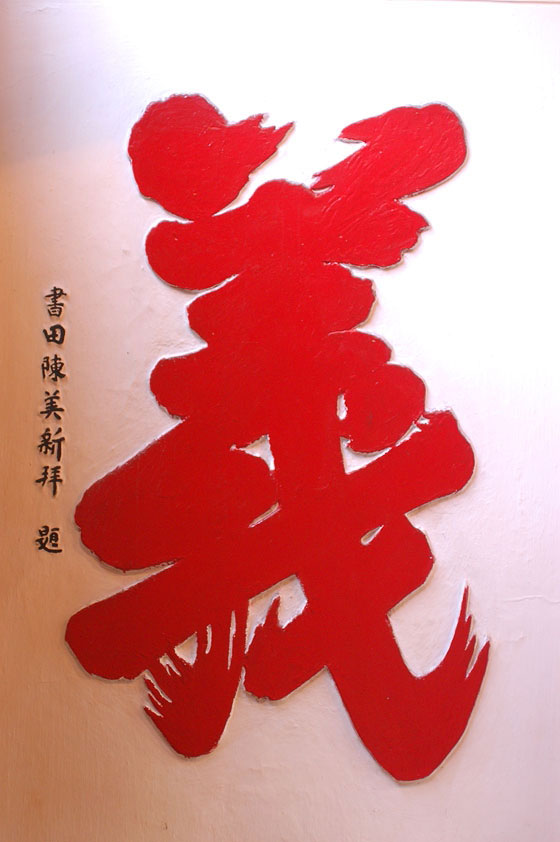 義
書田陳美新拜題